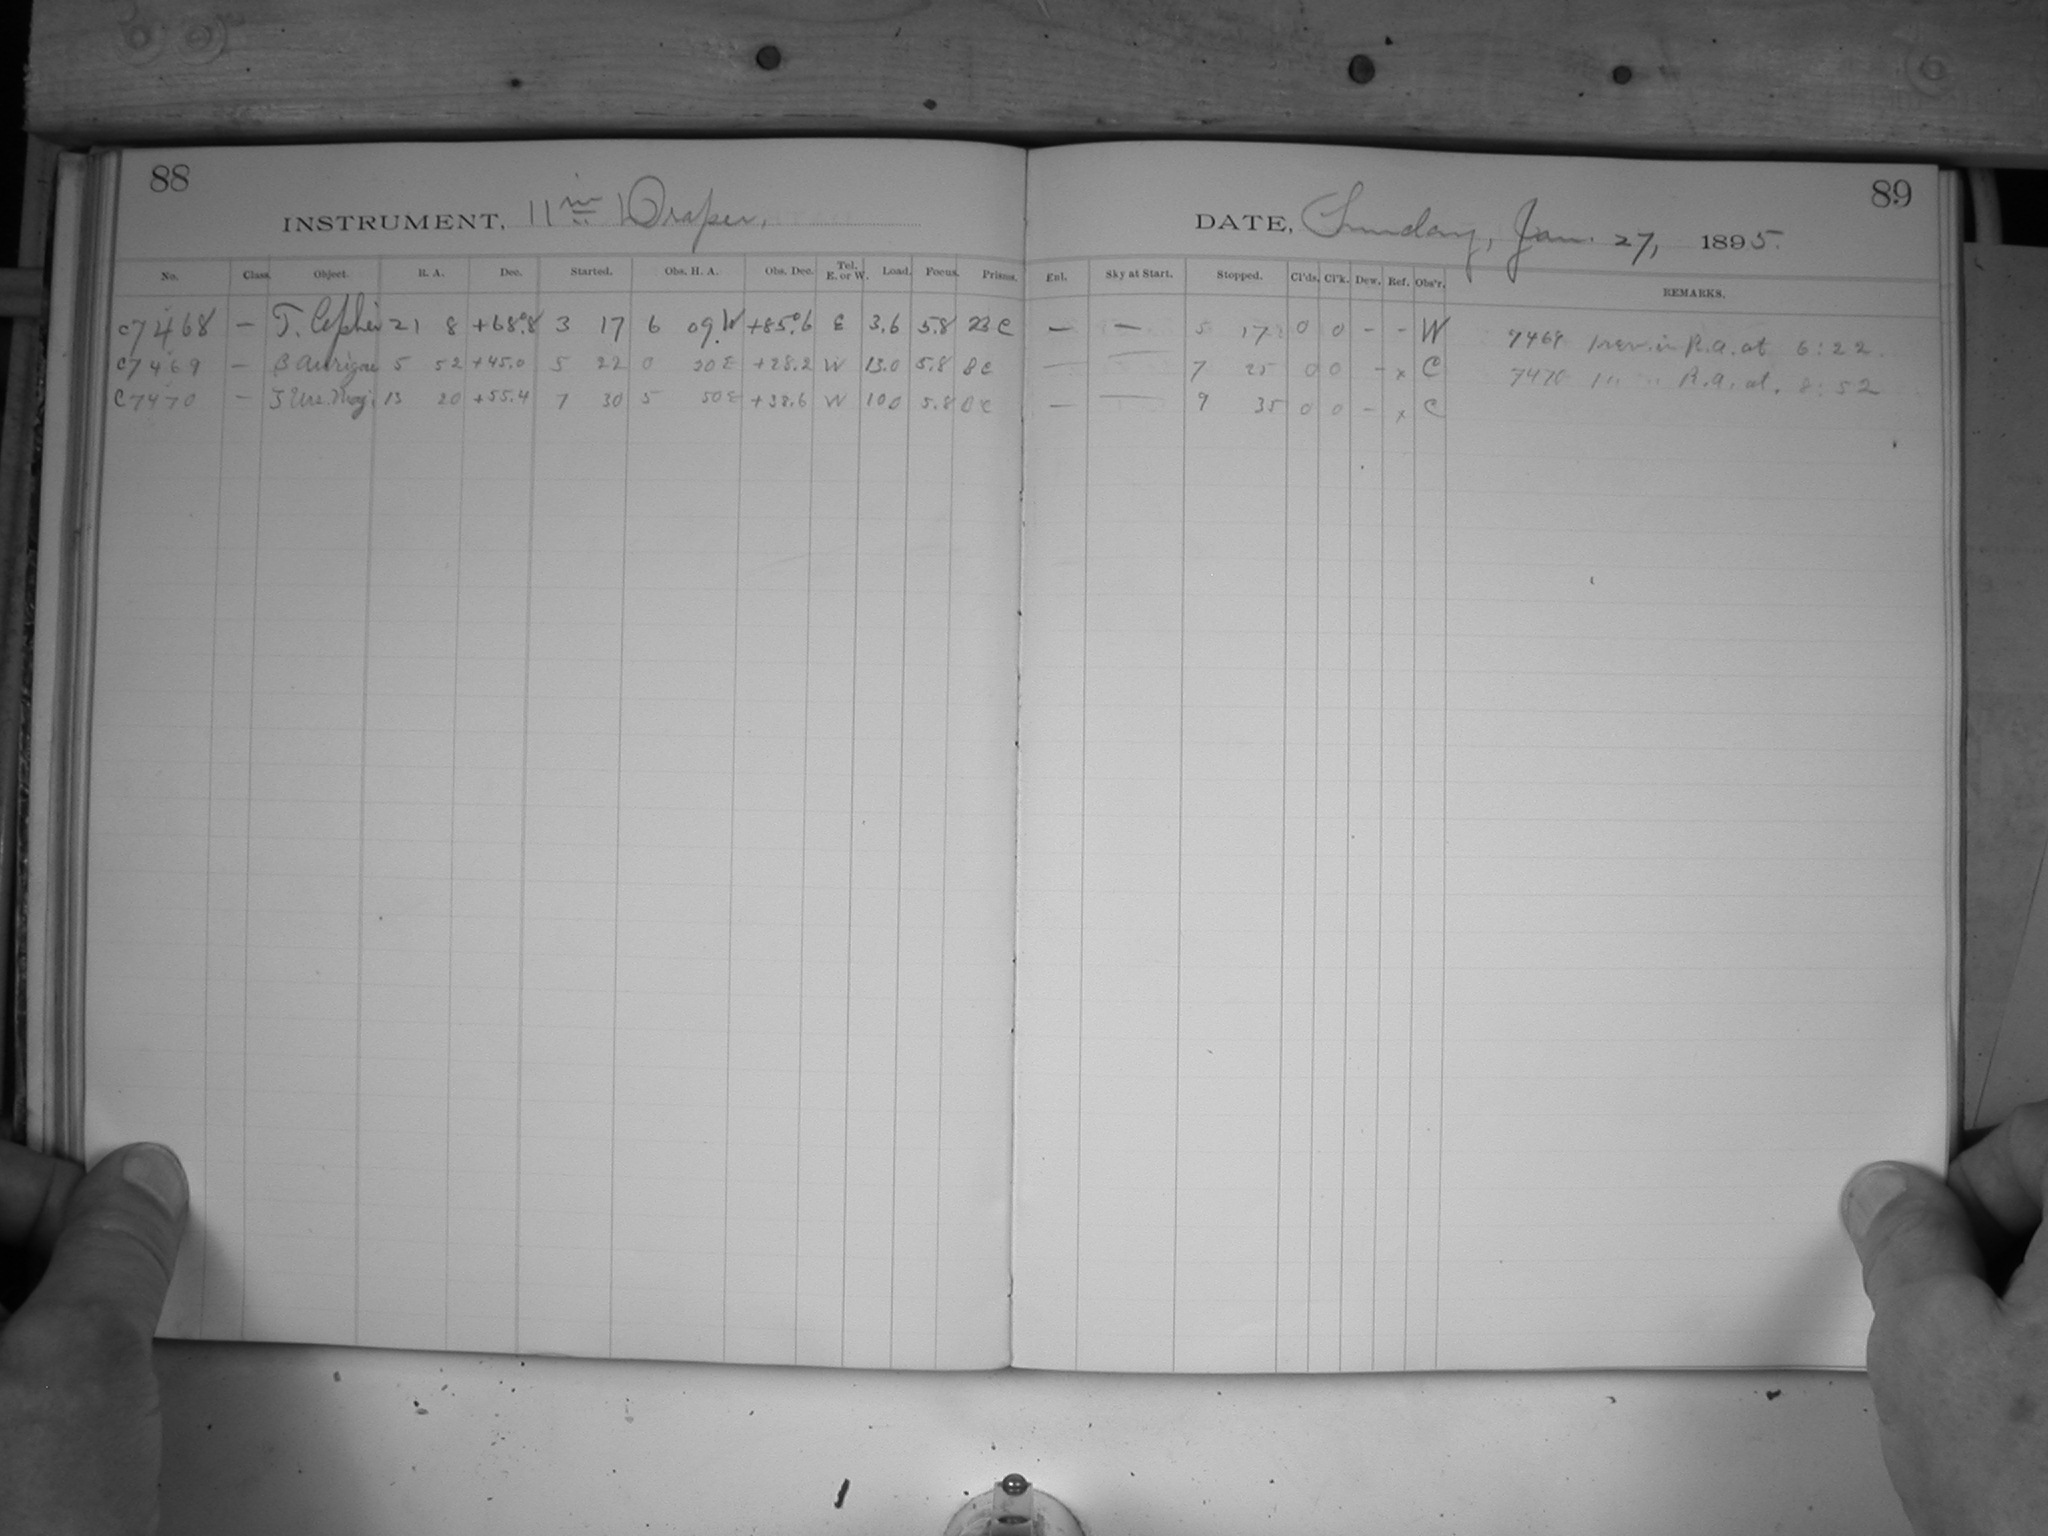 88
INSTRUMENT, 11 in Draper.
No. Class. Object. R. A. Dec. Started. Obs. H. A. Obs. Dec. Tel. E. or W. Load. Focus. Prisms.
C7468 — T. Cephei 21 8 +68°.8 3 17 6 09 W +85°.6 E 3.6 5.8 23 C
C7469 — B Aurigae 5 52 +45.0 5 22 0 30 E +28.2 W 13.0 5.8 8 C
C7470 — 13 20 +55.4 7 30 5 50 E +38.6 W 10 0 5.8 C
89
DATE, Sunday, Jan. 27, 1895.
Enl. Sky at Start. Stopped. Cl'ds. Cl'k. Dew. Ref. Obs'r. REMARKS.
— — 5 17 0 0 - - W 7469 in R.a. at 6:22.
— — 7 25 0 0 - x C 7470 R.a. at. 8:52
— — 9 35 0 0 - x C